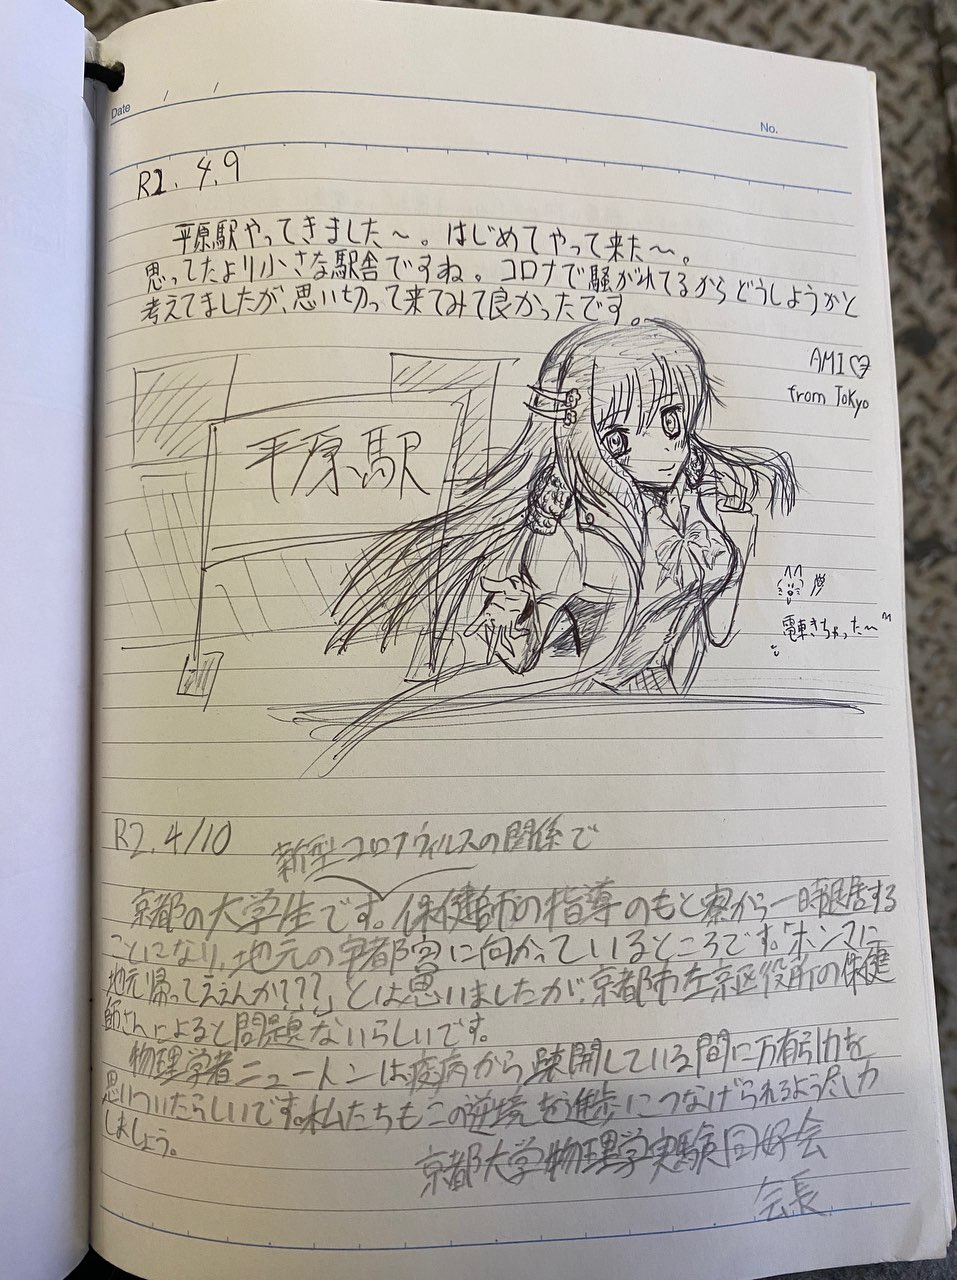 Date / /
No.
R2. 4.9
平原駅やってきました〜。はじめてやって来た〜。
思ってたより小さな駅舎ですね。コロナで騒がれてるからどうしようかと
考えてましたが、思い切って来てみて良かったです。
AMI♡
from Tokyo
平原駅
電車きちゃった〜
R2. 4/10
新型コロナウィルスの関係で
京都の大学生です。保健師の指導のもと寮から一時退居する
ことになり、地元の宇都宮に向かっているところです。「ホンマに
地元帰ってええんか???」とは思いましたが、京都市左京区役所の保健
師さんによると問題ないらしいです。
物理学者ニュートンは疫病から疎開している間に万有引力を
思いついたらしいです。私たちもこの逆境を進歩につなげられるよう尽力
しましょう。
京都大学物理学実験同好会
会長